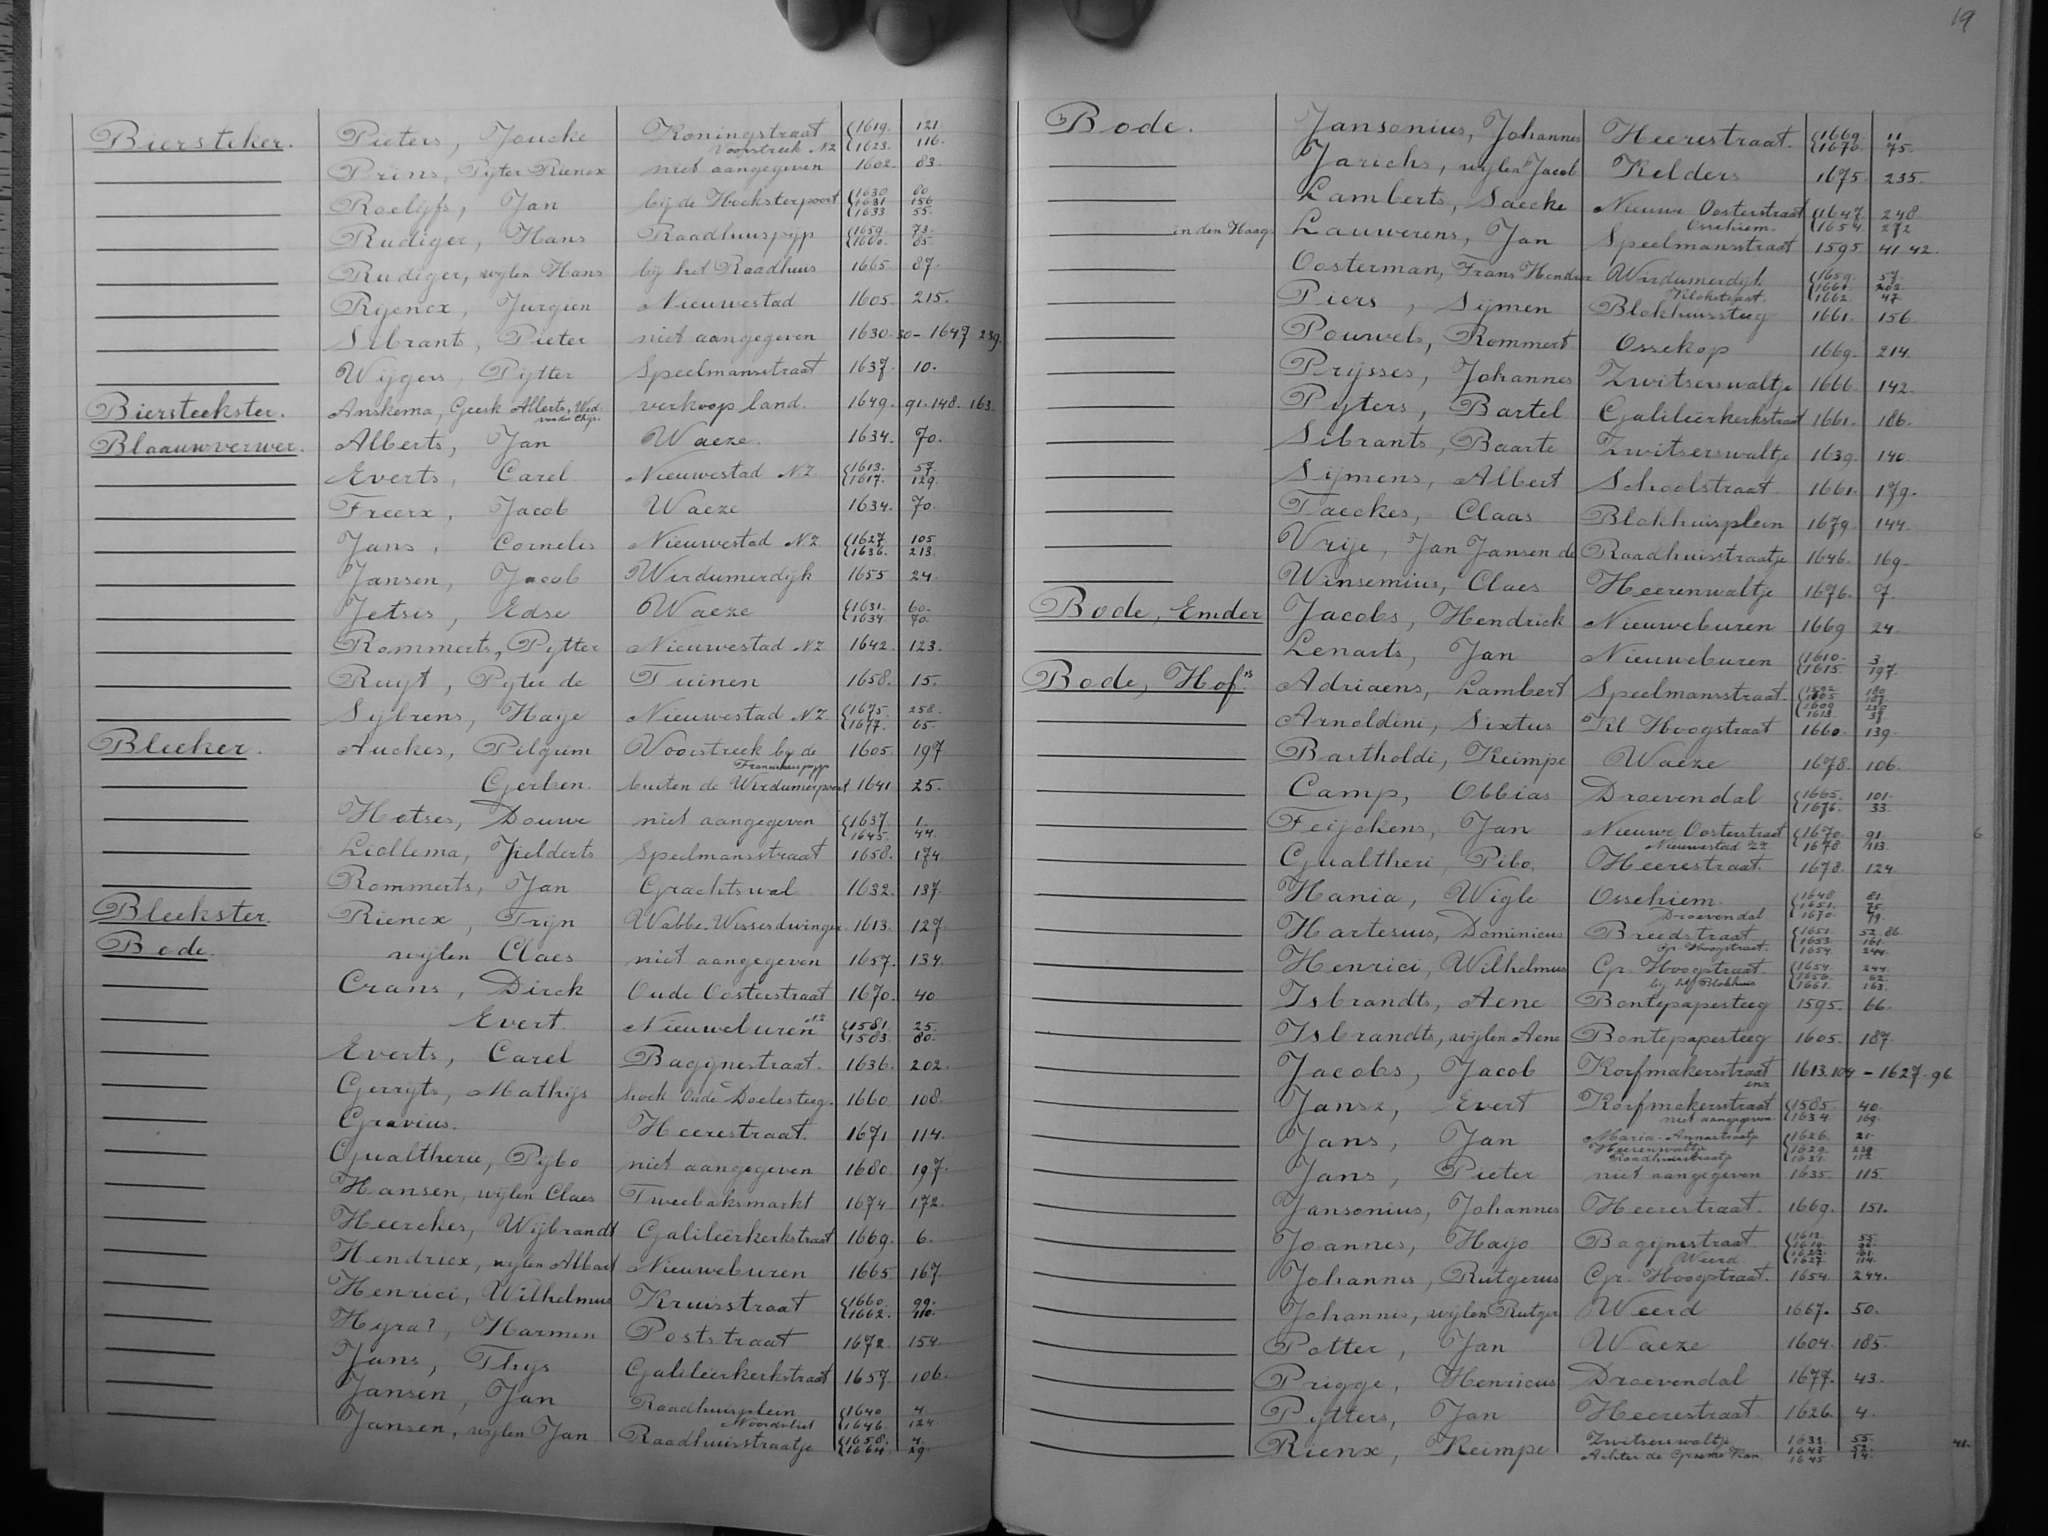 19
Biersteker. Pieters, Joucke Koningstraat 1619. 121.
Voorstreek NZ 1623. 116.
Prins, Pyter Rienex niet aangegeven 1602. 83.
Roelyfs, Jan bij de Hoeksterpoort 1630 80
1631 156
1633 55.
Rudiger, Hans Raadhuuspijp 1659. 73.
1660. 85.
Rudiger, wijlen Hans bij het Raadhuis 1665 87.
Rijencx, Jurgien Nieuwestad 1605. 215.
Sibrants, Pieter niet aangegeven 1630. 30 - 1647 239.
Wijgers, Pijtter Speelmansstraat 1637. 10.
Biersteekster. Anskema, Geesk Alberts, Wed. verkoop land. 1649. 91. 148. 163.
Blaauwverwer. Alberts, Jan Waeze. 1634. 70.
Everts, Carel Nieuwestad NZ 1613. 57.
1617. 129.
Freerx, Jacob Waeze 1634. 70.
Jans, Cornelis Nieuwestad NZ 1627 105
1636. 213.
Jansen, Jacob Wirdumerdijk 1655 24.
Jetses, Edse Waeze 1631. 60.
1634. 70.
Rommerts, Pytter Nieuwestad NZ 1642. 123.
Ruyt, Pyter de Tuinen 1658. 15.
Sijbrens, Haye Nieuwestad NZ 1675. 258.
1677. 65.
Bleeker. Auckes, Pelgrim Voorstreek bij de 1605. 197
Gerben buiten de Wirdumerpoort 1641 25.
Hotses, Douwe niet aangegeven 1637. 1.
1645. 44.
Liollema, Jielderts Speelmansstraat 1658. 174.
Rommerts, Jan Grachtswal 1632. 137.
Bleekster. Rienex, Trijn Wabbe Wisserdwinger 1613. 127.
Bode. wijlen Claes niet aangegeven 1657. 134.
Crans, Dirck Oude Oosterstraat 1670. 40.
Evert Nieuweburen NZ 1581. 25.
1583. 80.
Everts, Carel Bagijnestraat. 1636. 202.
Gerryts, Mathijs hoek Oude Doelesteeg. 1660 108.
Gravius. Heerestraat. 1671 114.
Gualtherie, Pijbo niet aangegeven 1680. 197.
Hansen, wijlen Claes Tweebaksmarkt 1674 172.
Heerckes, Wijbrandt Galileërkerkstraat 1669. 6.
Hendricx, wijlen Albert Nieuweburen 1665. 167.
Henrici, Wilhelmus Kruisstraat 1660. 99.
1662. 110.
Hyra?, Harmen Poststraat 1672. 154.
Jans, Thijs Galileërkerkstraat 1657 106.
Jansen, Jan Raadhuisplein 1640 4.
Noordvliet 1646. 124.
Jansen, wijlen Jan Raadhuisstraatje 1658. 4.
1664. 29.
Bode. Jansonius, Johannes Heerestraat. 1669. 11
1676. 75.
Jarichs, wijlen Jacob Kelders 1675. 235.
Lamberts, Saecke Nieuwe Oosterstraat 1647. 248.
Ossekiem. 1654. 272
in den Haag. Lauwerens, Jan Speelmansstraat 1595 41. 42.
Oosterman, Frans Hendrix Wirdumerdijk 1659. 57.
1661. 202.
1662. 47.
Piers, Sijmen Blokhuissteeg 1661. 156.
Pouwels, Rommert Ossekop 1669. 214.
Prijsses, Johannes Zwitserswaltje 1666. 142.
Pijters, Bartel Galileërkerkstraat 1661. 186.
Sibrants, Baarte Zwitserswaltje 1639. 140.
Sijmens, Albert Schoolstraat. 1661. 179.
Taeckes, Claas Blokhuisplein 1679. 144.
Vrije, Jan Jansen de Raadhuisstraatje 1646. 169.
Winsemius, Claes Heerenwaltje 1676. 7.
Bode, Emder Jacobs, Hendrick Nieuweburen 1669 24.
Lenarts, Jan Nieuweburen 1610. 3.
1615. 197.
Bode, Hofs Adriaens, Lambert Speelmansstraat.
Arnoldini, Sixtus Kl Hoogstraat 1660. 139.
Bartholdi, Keimpe Waeze 1678. 106.
Camp, Obbias Droevendal 1665. 101.
1676. 33.
Feijckens, Jan Nieuwe Oosterstraat 1670. 91.
Nieuwestad ZZ 1678 113.
Gualtheri, Pibo, Heerestraat. 1678. 124.
Hania, Wigle Ossekiem. 1648. 81.
1651. 75.
Droevendal 1670. 79.
Hartesius, Dominicus Breedstraat 1651. 52. 86.
1653. 161.
Gr Hoogstraat. 1654 244.
Henrici, Wilhelmus Gr. Hoogstraat. 1654. 244.
1656. 62.
bij 't Blokhuis 1661. 163.
Isbrandts, Aene Bontepapesteeg 1595. 66.
Isbrandts, wijlen Aene Bontepapesteeg 1605. 187.
Jacobs, Jacob Korfmakersstraat 1613. 104 - 1627. 96.
Jansz, Evert Korfmakersstraat 1585. 40.
niet aangegeven 1634. 169.
Jans, Jan Maria-Annastraatje 1626. 21.
Heerenwaltje 1629. 239.
Raadhuisstraatje 1631. 112
Jans, Pieter niet aangegeven 1635. 115.
Jansonius, Johannes Heerestraat. 1669. 151.
Joannes, Hayo Bagijnestraat.
Weerd 1627. 114.
Johannis, Rutgerus Gr. Hoogstraat. 1654. 244.
Johannis, wijlen Rutger Weerd 1667. 50.
Potter, Jan Waeze 1604. 185.
Prigge, Henricus Droevendal 1677. 43.
Pytters, Jan Heerestraat. 1626. 4.
Rienx, Keimpe Zwitserwaltje 1632. 55.
1643. 52.
Achter de Groene Kan. 1645. 14.